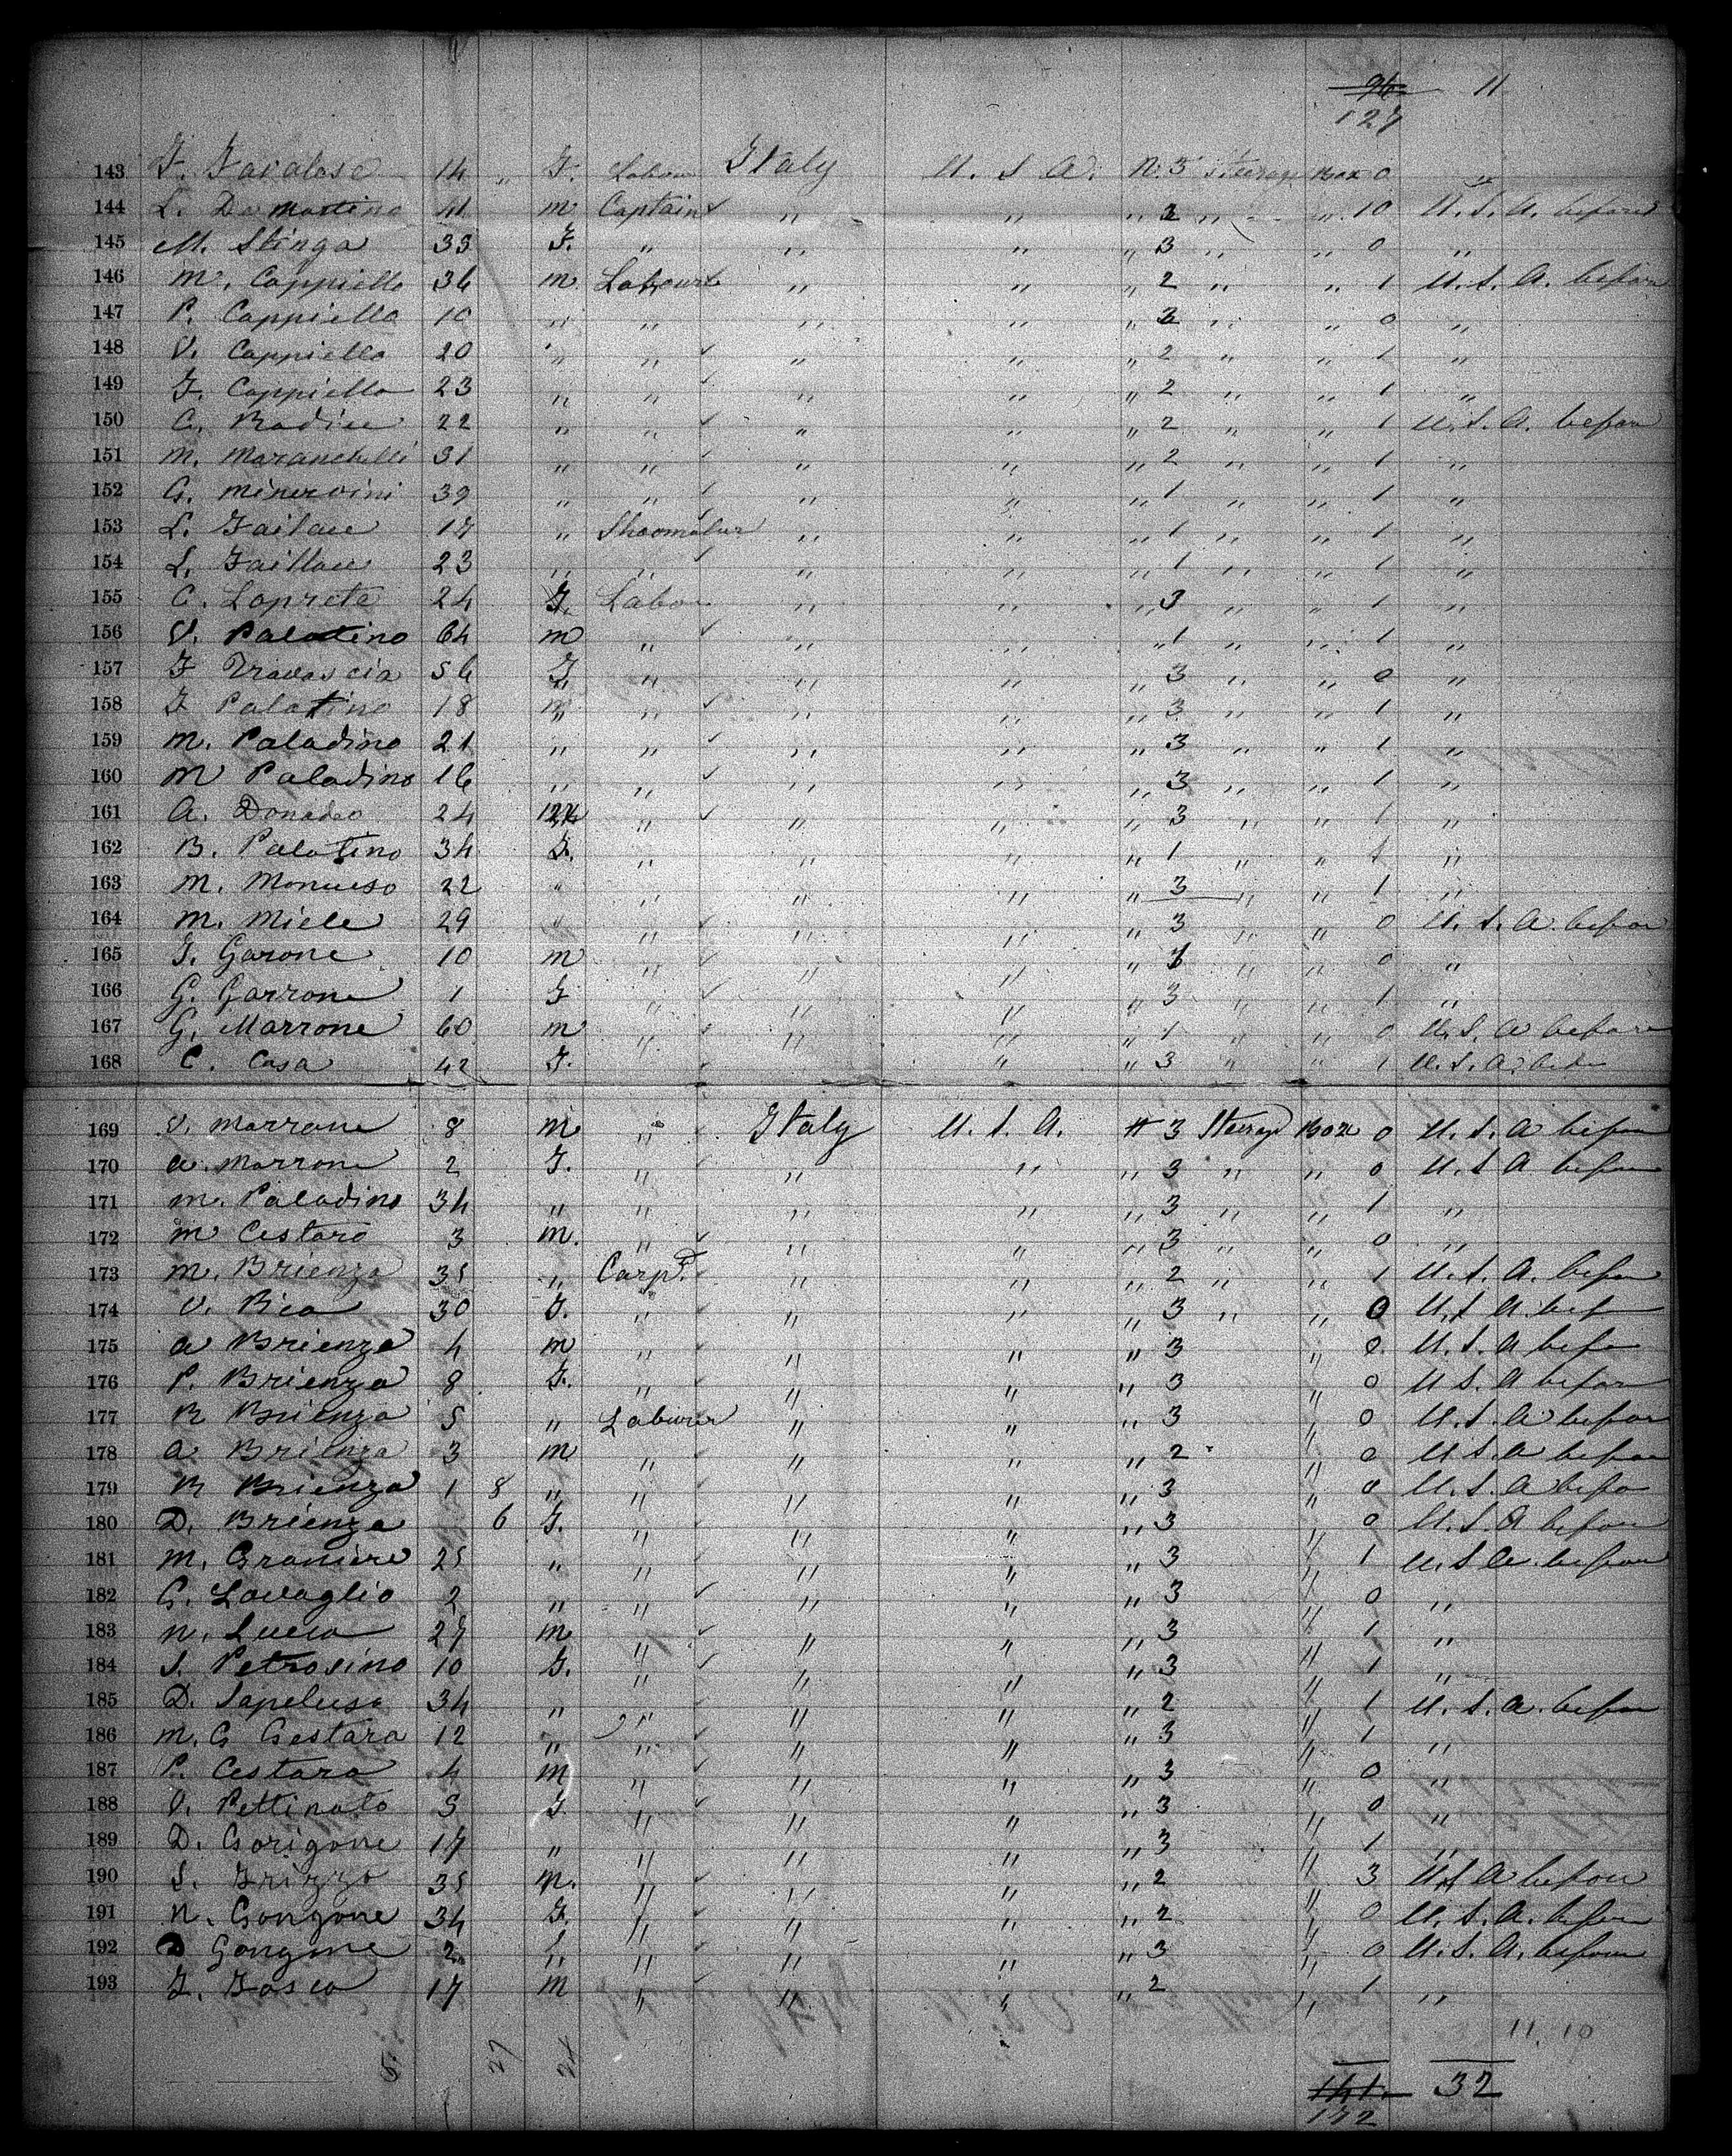 96 11
127
143 F. 14 " F. Labour Italy U. S. A. N. 3 Steerage Box 0 "
144 L. De Martino 41 m Captain " " " 2 " " 10 U. S. A. before
145 M. Stinga 35 F. " " " " 3 " " 0 "
146 M. Cappiello 36 m Labour " " " 2 " " 1 U. S. A. before
147 P. Cappiello 10 " " " " " 2 " " 0 "
148 V. Cappiello 20 " " " " " 2 " " 1 "
149 F. Cappiello 23 " " " " " 2 " " 1 "
150 C. Radice 22 " " " " " 2 " " 1 U. S. A. before
151 M. 31 " " " " " 2 " " 1 "
152 G. Minervini 39 " " " " " 1 " " 1 "
153 L. Failace 17 " " " " 1 " " 1 "
154 L. Faillace 23 " " " " " 1 " " 1 "
155 C. Loprete 24 F. Labou " " " 3 " " 1 "
156 V. Palatino 64 m " " " " 1 " " 1 "
157 F 56 F " " " " 3 " " 0 "
158 F Palatino 18 m " " " " 3 " " 1 "
159 M. Paladino 21 " " " " " 3 " " 1 "
160 M Paladino 16 " " " " " 3 " " 1 "
161 A. Donadeo 24 " " " " 3 " " 1 "
162 B. Palatino 34 F. " " " " 1 " " 1 "
163 M. 22 " " " " " 3 " " 1 "
164 M. Miele 29 " " " " " 3 " " 0 U. S. A. before
165 F. Garone 10 m " " " " " " 0 "
166 G. Garrone 1 F " " " " 3 " " 1 "
167 G. Marrone 60 m " " " " 1 " " 0 U. S. A before
168 C. Casa 42 F. " " " " 3 " " 1 U. S. A.
169 V. Marrone 8 m " Italy U. S. A. " 3 Steerage Box 0 U. S. A before
170 A. Marrone 2 F. " " " " 3 " " 0 U. S A before
171 M. Paladino 34 " " " " " 3 " " 1 "
172 M Cestaro 3 m. " " " " 3 " " 0 "
173 M. Brienza 35 " Carpt. " " " 2 " " 1 U. S. A. before
174 V. Bica 30 F. " " " " 3 " " 0 U. S A before
175 A Brienza 4 m " " " " 3 " 0 U. S. A before
176 P. Brienza 8 F. " " " " 3 " 0 U S. A before
177 R Brienza 5 " Labourer " " " 3 " 0 U. S. A before
178 A. Brienza 3 m " " " " 2 " 0 U S. A before
179 R Brienza 1 8 " " " " " 3 " 0 U. S. A before
180 D. Brienza 6 F. " " " " 3 " 0 U. S. A before
181 M. Graniere 25 " " " " " 3 " 1 U. S A. before
182 G. Lovaglio 2 " " " " " 3 " 0 "
183 N. Lucca 27 m " " " " 3 " 1 "
184 S. Petrosino 10 F. " " " " 3 " 1 "
185 D. Sapeluso 34 " " " " " 2 " 1 U. S. A. before
186 M. G Cestara 12 " " " " " 3 " 1 "
187 P. Cestara 4 m " " " " 3 " 0 "
188 V. Pettinato 5 F. " " " " 3 " 0 "
189 D. Gorigone 17 " " " " " 3 " 1 "
190 S. Frizzo 35 m. " " " " 2 " 3 U S A before
191 N. Gongone 34 F. " " " " 2 " 0 U. S. A. before
192 D Gongone 2 " " " " " 3 " 0 U. S. A. before
193 F. Fosco 17 m " " " " 2 " 1 "
11. 10
27
141 32
172